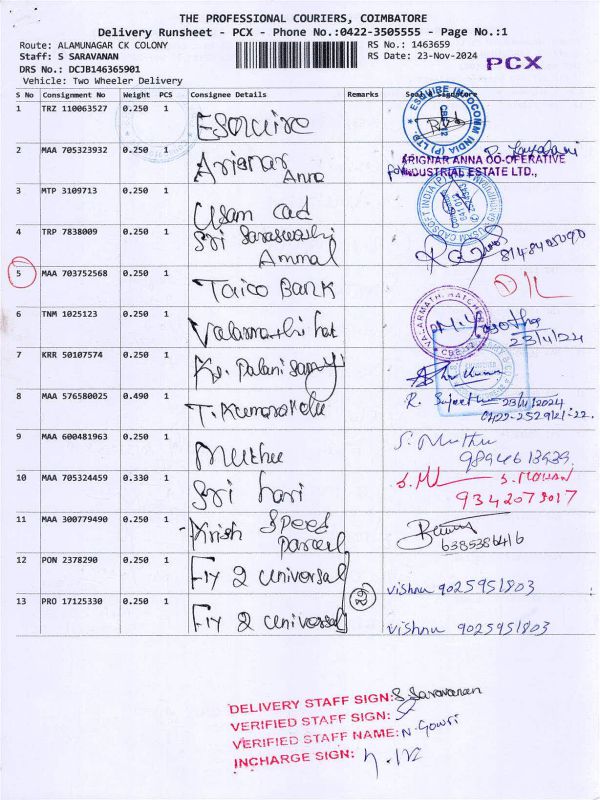 THE PROFESSIONAL COURIERS, COIMBATORE
Delivery Runsheet - PCX - Phone No.:0422-3505555 - Page No.:1
Route: ALAMUNAGAR CK COLONY
RS No.: 1463659
Staff: S SARAVANAN
RS Date: 23-Nov-2024
PCX
DRS No.: DCJB146365901
Vehicle: Two Wheeler Delivery
S No Consignment No Weight PCS Consignee Details Remarks Seal & Signature
1 TRZ 110063527 0.250 1 Esquire
ESQUIRE INFOCOMM INDIA (P) LTD.
2 MAA 705323932 0.250 1 Arignar Anna
ARIGNAR ANNA CO-OPERATIVE
INDUSTRIAL ESTATE LTD.,
3 MTP 3109713 0.250 1 Usam cad
4 TRP 7838009 0.250 1 Sri Saraswathi Ammal
5 MAA 703752568 0.250 1 Taico Bank DL
6 TNM 1025123 0.250 1
23/11/24
7 KRR 50107574 0.250 1 Palanisamy
8 MAA 576580025 0.490 1 23/11/2024
9 MAA 600481963 0.250 1 Muthu S. Muthu
10 MAA 705324459 0.330 1 Sri hari S. MOHAN
11 MAA 300779490 0.250 1 Krish Speed Parcel
6385386416
12 PON 2378290 0.250 1 Fly 2 universal vishnu 9025951803
13 PRO 17125330 0.250 1 Fly 2 universal vishnu 9025951803
DELIVERY STAFF SIGN: S. Saravanan
VERIFIED STAFF SIGN:
VERIFIED STAFF NAME: N. Gowri
INCHARGE SIGN: